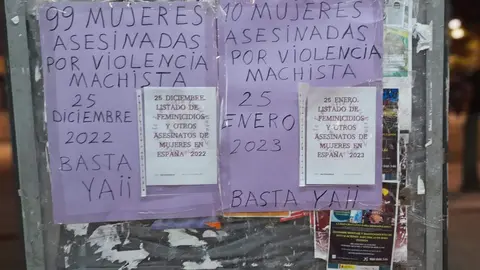 99 MUJERES
ASESINADAS
POR VIOLENCIA
MACHISTA
25
DICIEMBRE
2022
BASTA
YA¡¡
25 DICIEMBRE.
LISTADO DE
FEMINICIDIOS
Y OTROS
ASESINATOS DE
MUJERES EN
ESPAÑA 2022
10 MUJERES
ASESINADAS
POR VIOLENCIA
MACHISTA
25
ENERO
2023
BASTA YA¡¡
25 ENERO.
LISTADO DE
FEMINICIDIOS
Y OTROS
ASESINATOS DE
MUJERES EN
ESPAÑA 2023